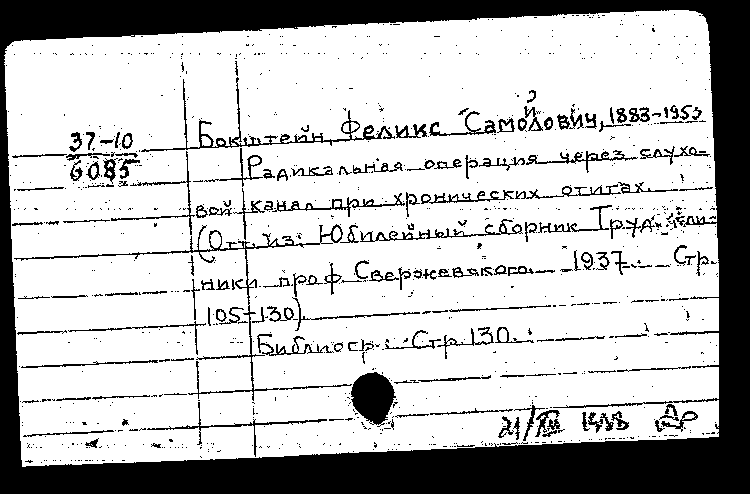 37-10
6085
Бокштейн, Феликс Самойлович, 1883-1953
Радикальная операция через слухо-
вой канал при хронических отитах.
(Отт. из: Юбилейный сборник Труд. кли-
ники проф. Свержевского. 1937. Стр.
105-130).
Библиогр.: Стр. 130.
21/XII